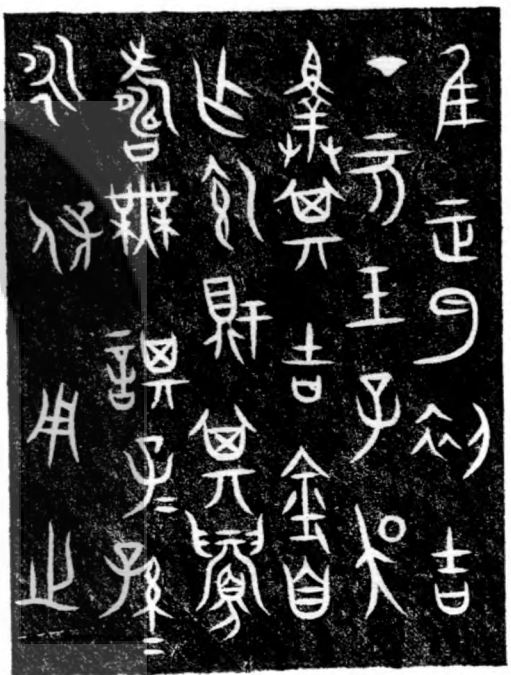 隹正月初吉
丁亥王子吳
擇其吉金自
乍飤鼾其眉
壽無諆子＝孫＝
永保用之